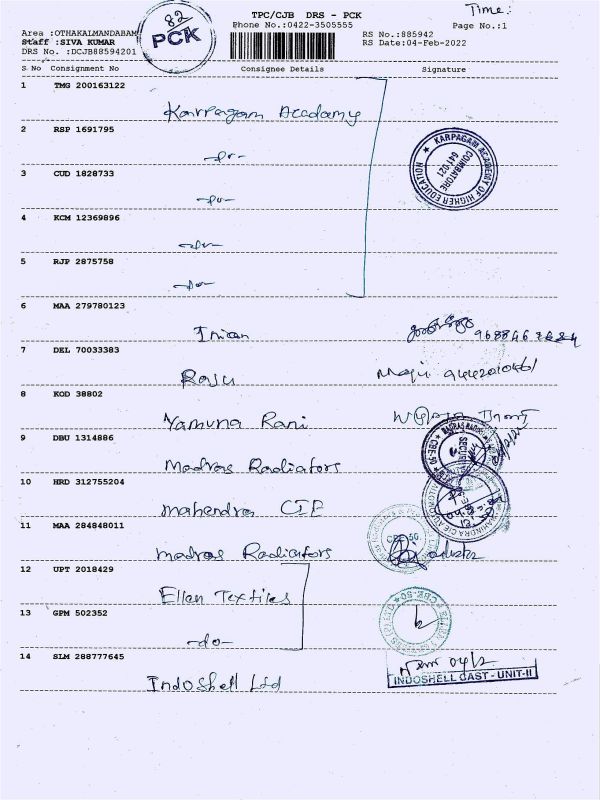 TPC/CJB DRS - PCK
Time:
Phone No.:0422-3505555
Page No.:1
Area :OTHAKALMANDABAM
Staff :SIVA KUMAR
DRS No. :DCJB88594201
82
PCK
RS No.:885942
RS Date:04-Feb-2022
S No Consignment No Consignee Details Signature
1 TMG 200163122
Karpagam Academy
2 RSP 1691795
-do-
3 CUD 1828733
-do-
4 KCM 12369896
-do-
5 RJP 2875758
-do-
KARPAGAM ACADEMY OF HIGHER EDUCATION
COIMBATORE
641 021
6 MAA 279780123
7 DEL 70033383
Raju
8 KOD 38802
Yamuna Rani
9 DBU 1314886
Madras Radiators
10 HRD 312755204
Mahendra CIE
11 MAA 284848011
Madras Radiators
CBE-50
12 UPT 2018429
Ellen Textiles
13 GPM 502352
-do-
CBE-50
14 SLM 288777645
IndoShell Ltd
04/2
INDOSHELL CAST - UNIT-II